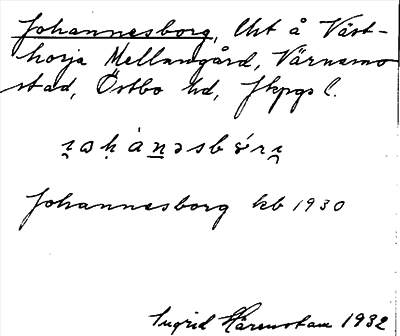 Johannesborg, lht å Väst-
horja Mellangård, Värnamo
stad, Östbo hd, Jkpgs l.
Johannesborg kb 1930
Ingrid 1932